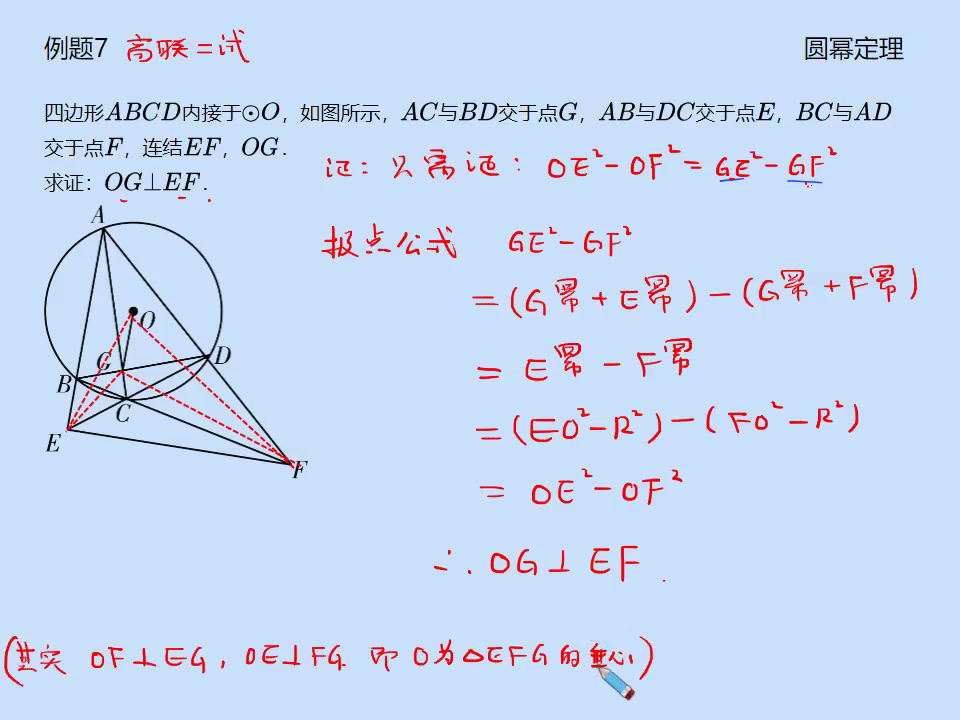 例题7 高联二试
圆幂定理
四边形ABCD内接于⊙O，如图所示，AC与BD交于点G，AB与DC交于点E，BC与AD
交于点F，连结EF，OG．
求证：OG⊥EF．
证：只需证：OE²-OF²=GE²-GF²
报点公式 GE²-GF²
=(G幂+E幂)-(G幂+F幂)
=E幂-F幂
=(EO²-R²)-(FO²-R²)
=OE²-OF²
∴OG⊥EF.
(其实 OF⊥EG，OE⊥FG 即O为△EFG的垂心)
A
O
G
D
B
C
E
F